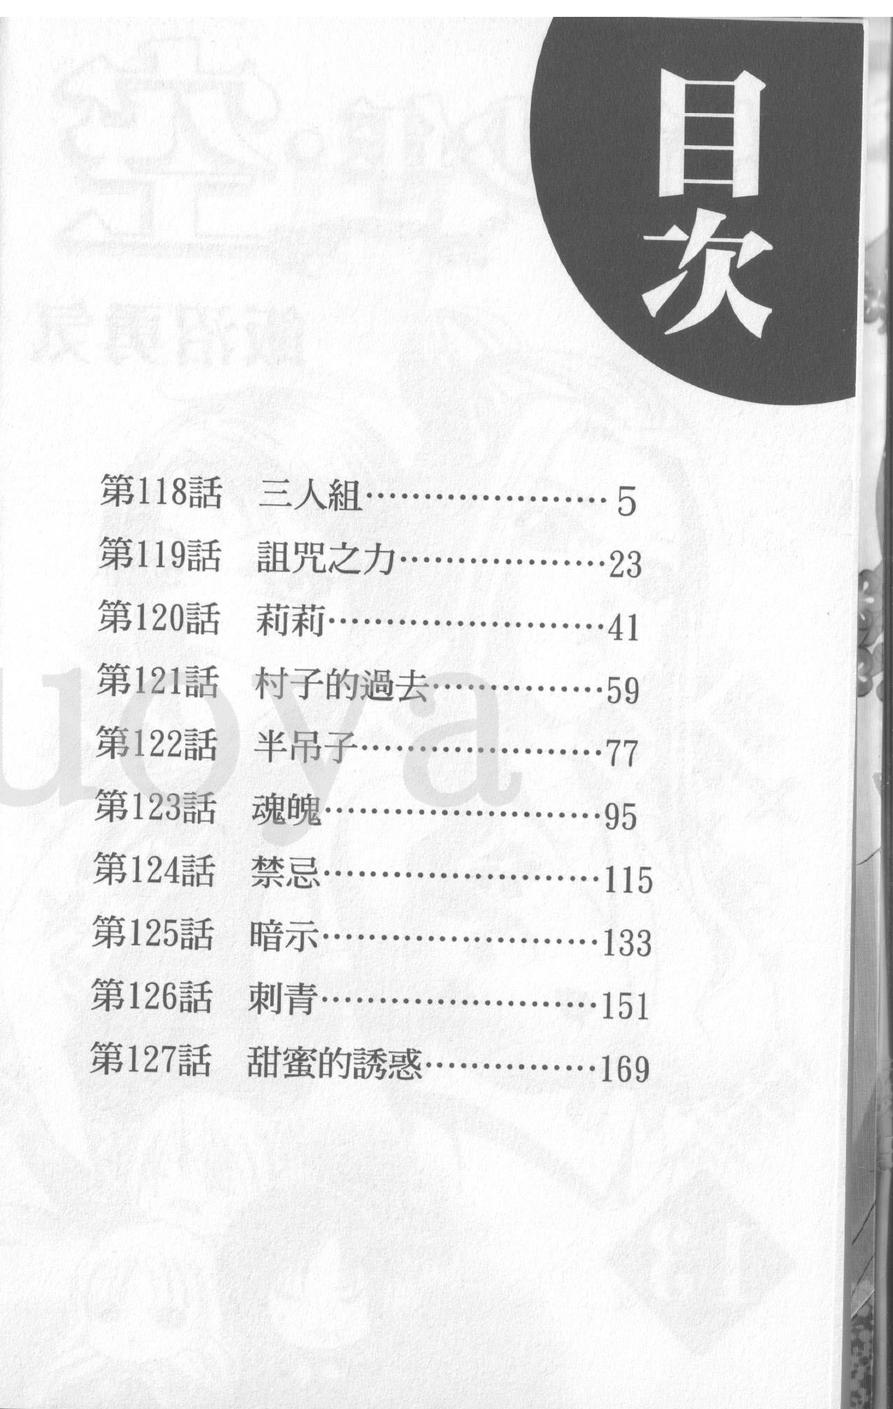 目次
第118話 三人組…………………5
第119話 詛咒之力………………23
第120話 莉莉……………………41
第121話 村子的過去……………59
第122話 半吊子…………………77
第123話 魂魄……………………95
第124話 禁忌……………………115
第125話 暗示……………………133
第126話 刺青……………………151
第127話 甜蜜的誘惑……………169
uoya